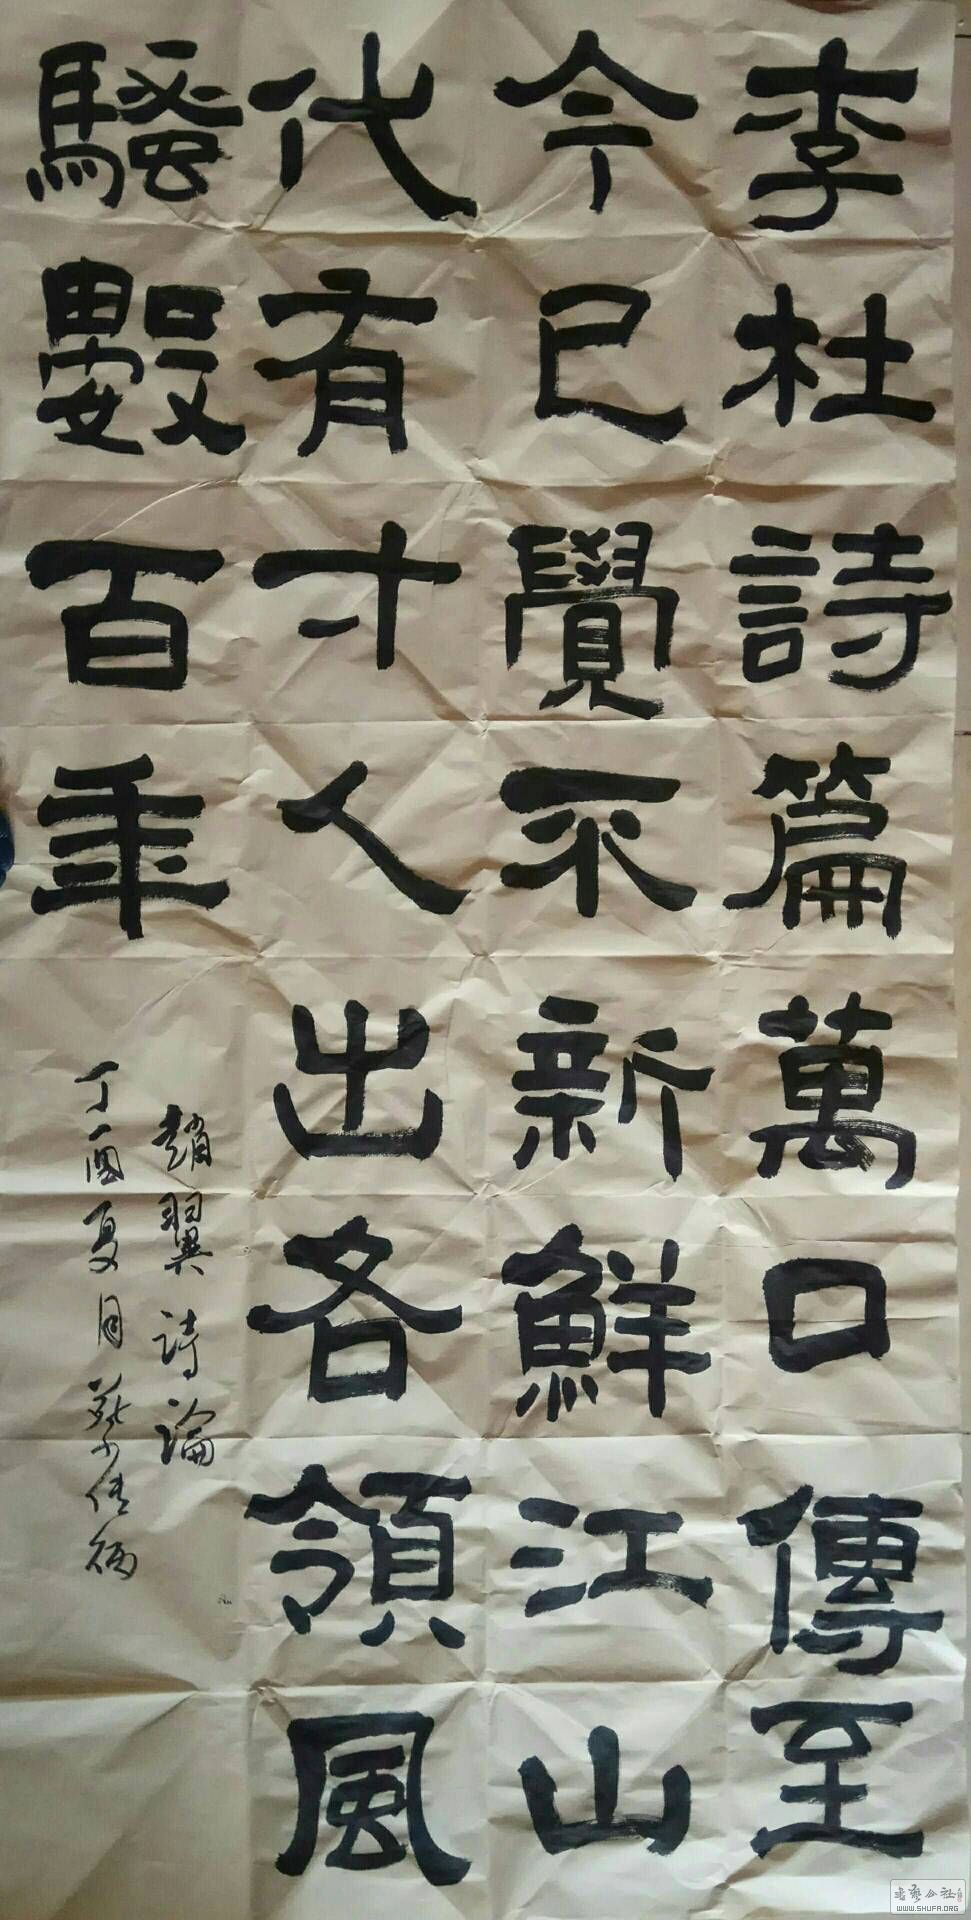 李杜詩篇萬口傳至
今已覺不新鮮江山
代有才人出各領風
騷數百年
趙翼詩論
丁酉夏月
书艺公社
WWW.SHUFA.ORG